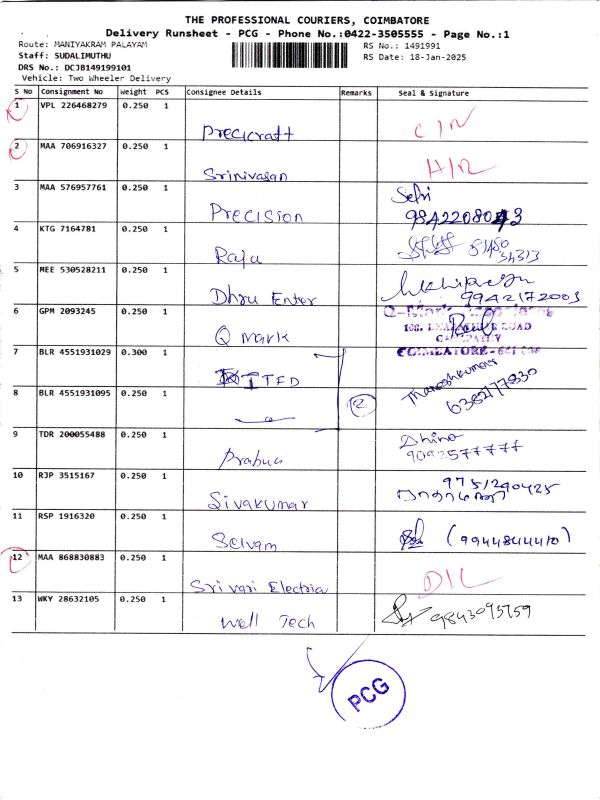 THE PROFESSIONAL COURIERS, COIMBATORE
Delivery Runsheet - PCG - Phone No.:0422-3505555 - Page No.:1
Route: MANIYAKRAM PALAYAM
RS No.: 1491991
Staff: SUDALIMUTHU
RS Date: 18-Jan-2025
DRS No.: DCJB149199101
Vehicle: Two Wheeler Delivery
S No Consignment No Weight PCS Consignee Details Remarks Seal & Signature
1 VPL 226468279 0.250 1 Precicraft
2 MAA 706916327 0.250 1 Srinivasan
3 MAA 576957761 0.250 1 Precision Selvi
4 KTG 7164781 0.250 1 Raju
5 MEE 530528211 0.250 1 Dhru Enter 9942172003
6 GPM 2093245 0.250 1 Q mark Q-Mark
ROAD
COIMBATORE
7 BLR 4551931029 0.300 1 ITFD
8 BLR 4551931095 0.250 1 2 6382177830
9 TDR 200055488 0.250 1 Prabuu Dhina
9092577777
10 RJP 3515167 0.250 1 Sivakumar 9751290425
11 RSP 1916320 0.250 1 Selvam (9944844410)
12 MAA 868830883 0.250 1 Srivari Electria D/L
13 WKY 28632105 0.250 1 Well Tech 9843095759
PCG